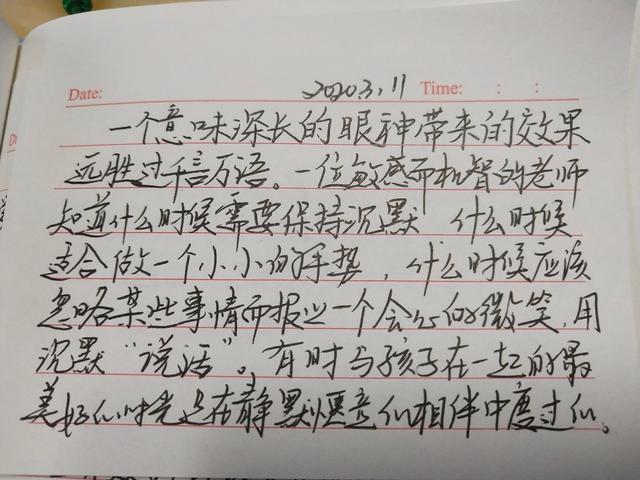 Date: 2020.3.11 Time: : :
一个意味深长的眼神带来的效果
远胜过千言万语。一位敏感而机智的老师
知道什么时候需要保持沉默 什么时候
适合做一个小小的手势，什么时候应该
忽略某些事情而报以一个会心的微笑，用
沉默“说话”。有时与孩子在一起的最
美好的时光是在静默惬意的相伴中度过的。